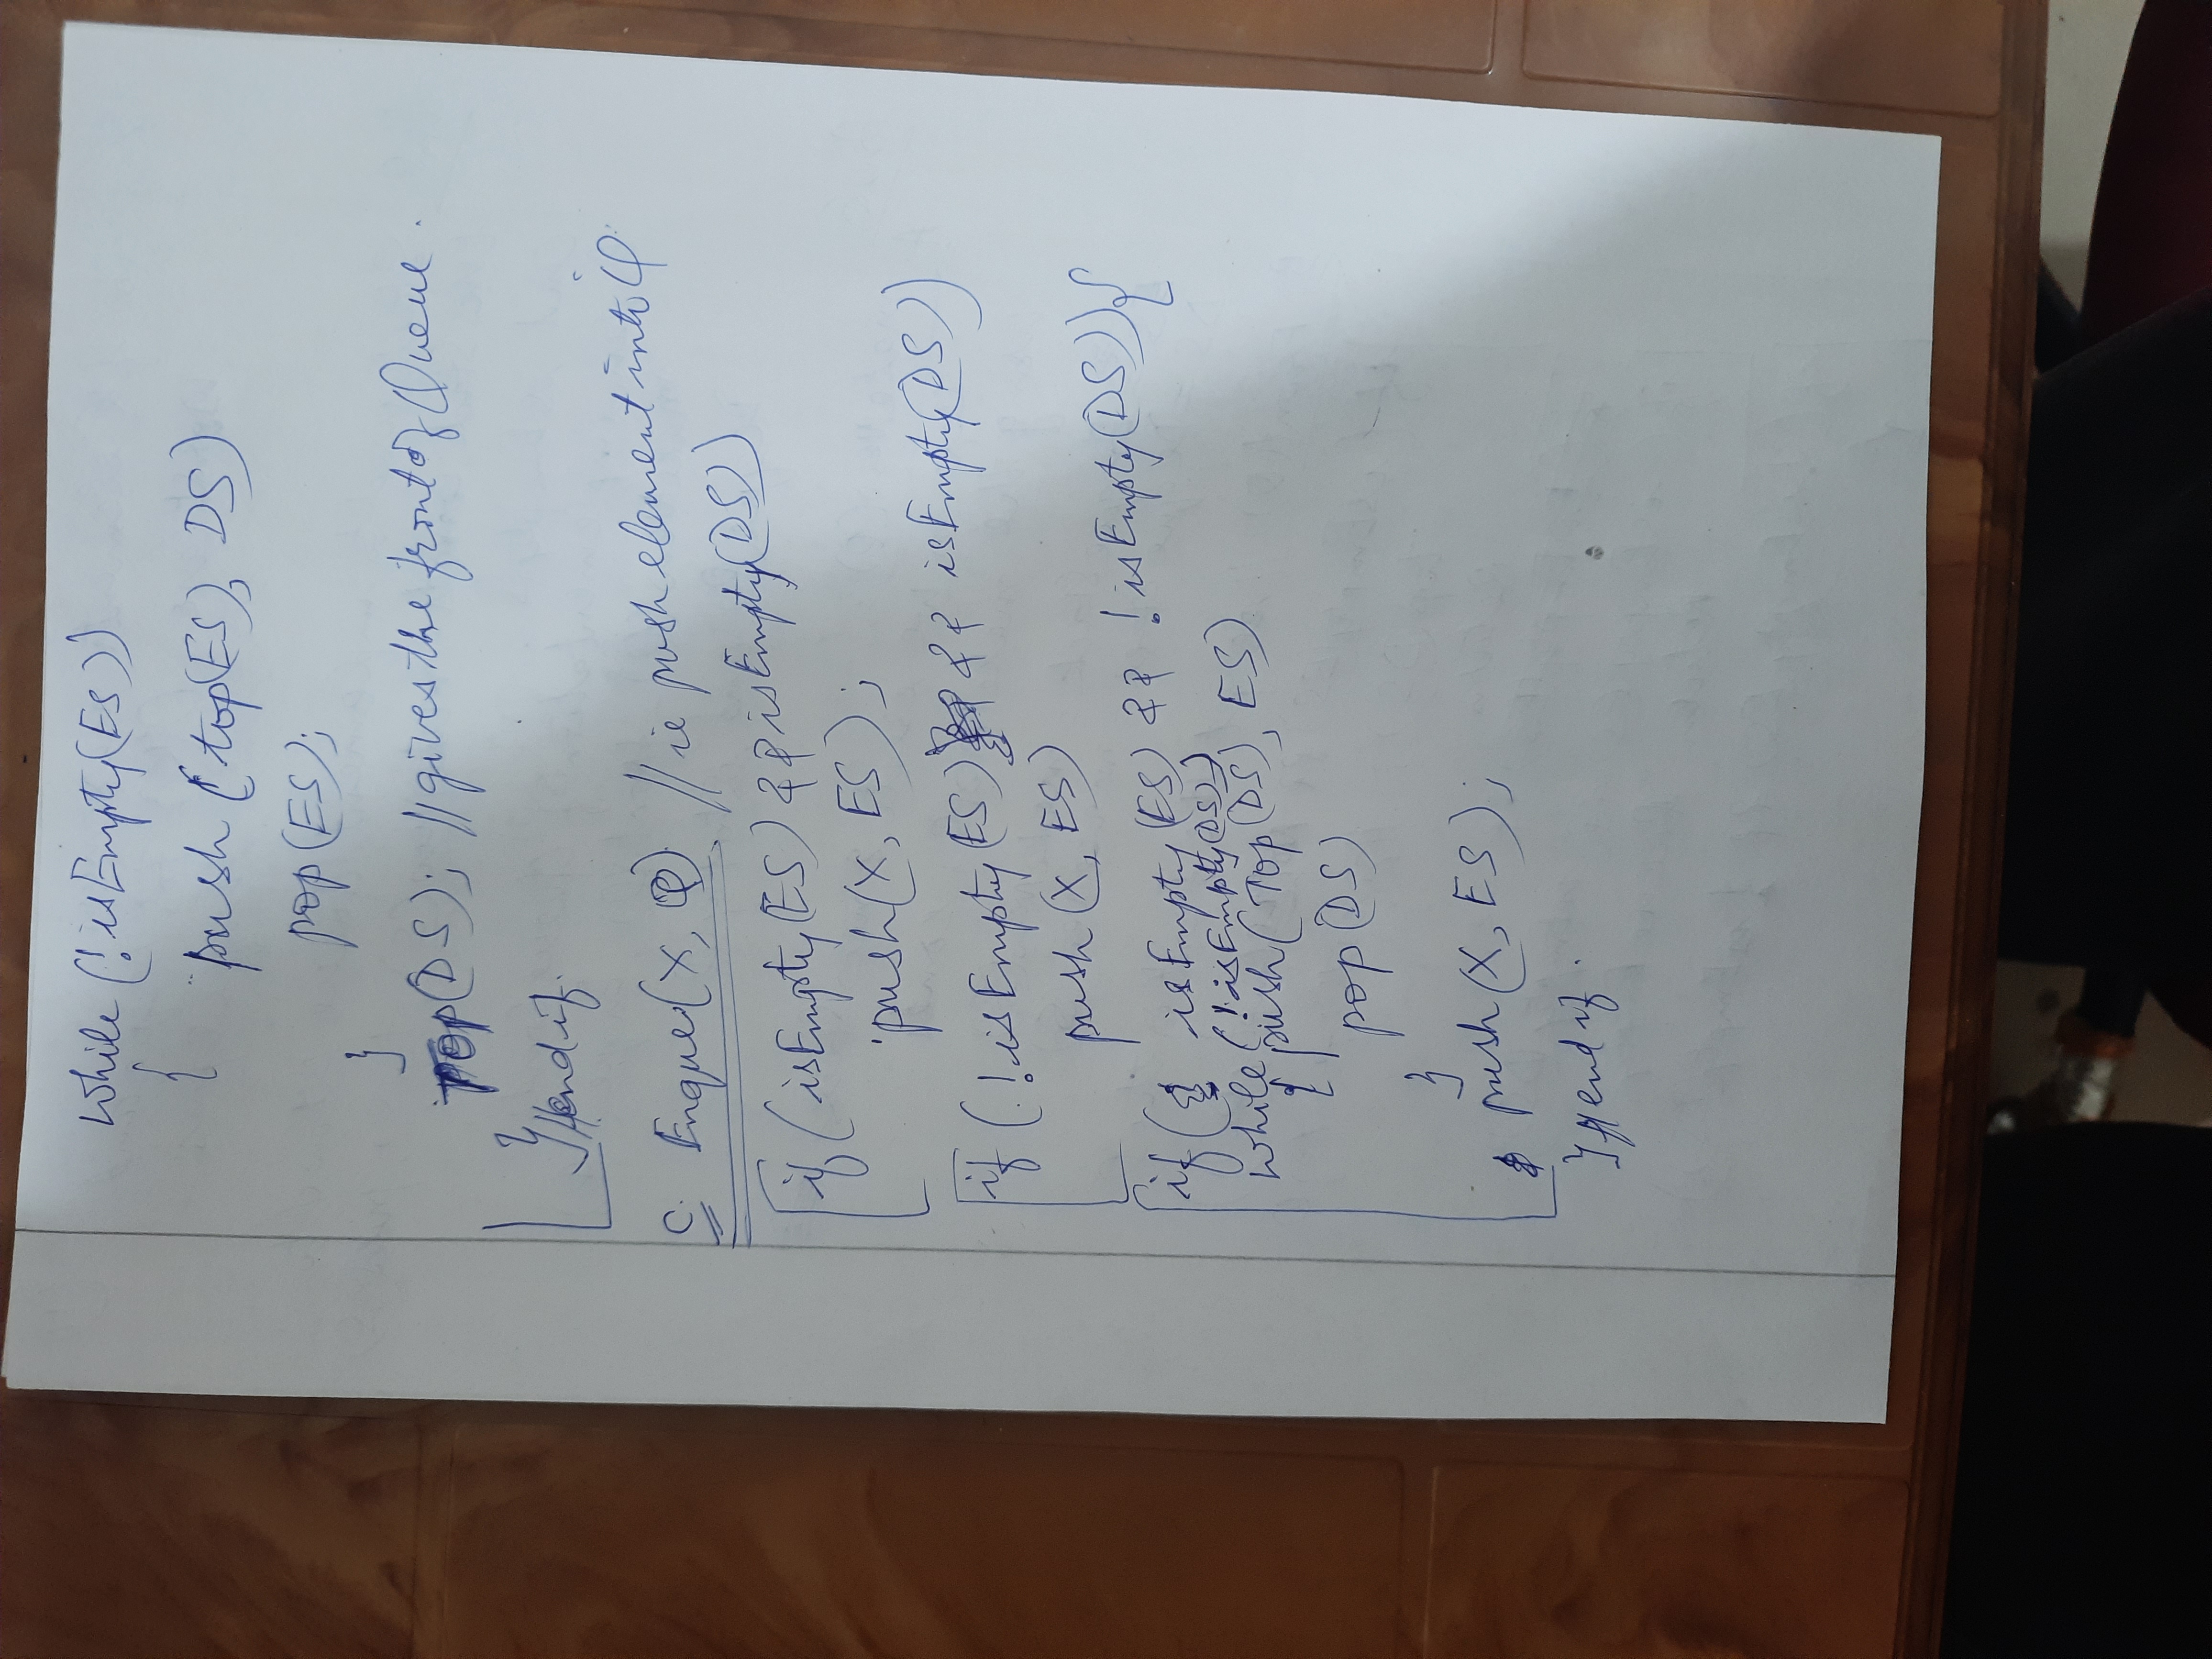 while (!isEmpty(ES))
{
push (top(ES), DS)
pop(ES);
}
Top(DS); // gives the front of Queue.
} // end if.
C. Enqueue(X, Q) // ie push element into Q.
if (isEmpty(ES) && isEmpty(DS))
push(X, ES);
if (!isEmpty(ES) && isEmpty(DS))
push(X, ES)
if ( isEmpty(ES) && !isEmpty(DS)){
while(!isEmpty(DS))
{ push(Top(DS), ES)
pop(DS)
}
push(X, ES);
} // end if.